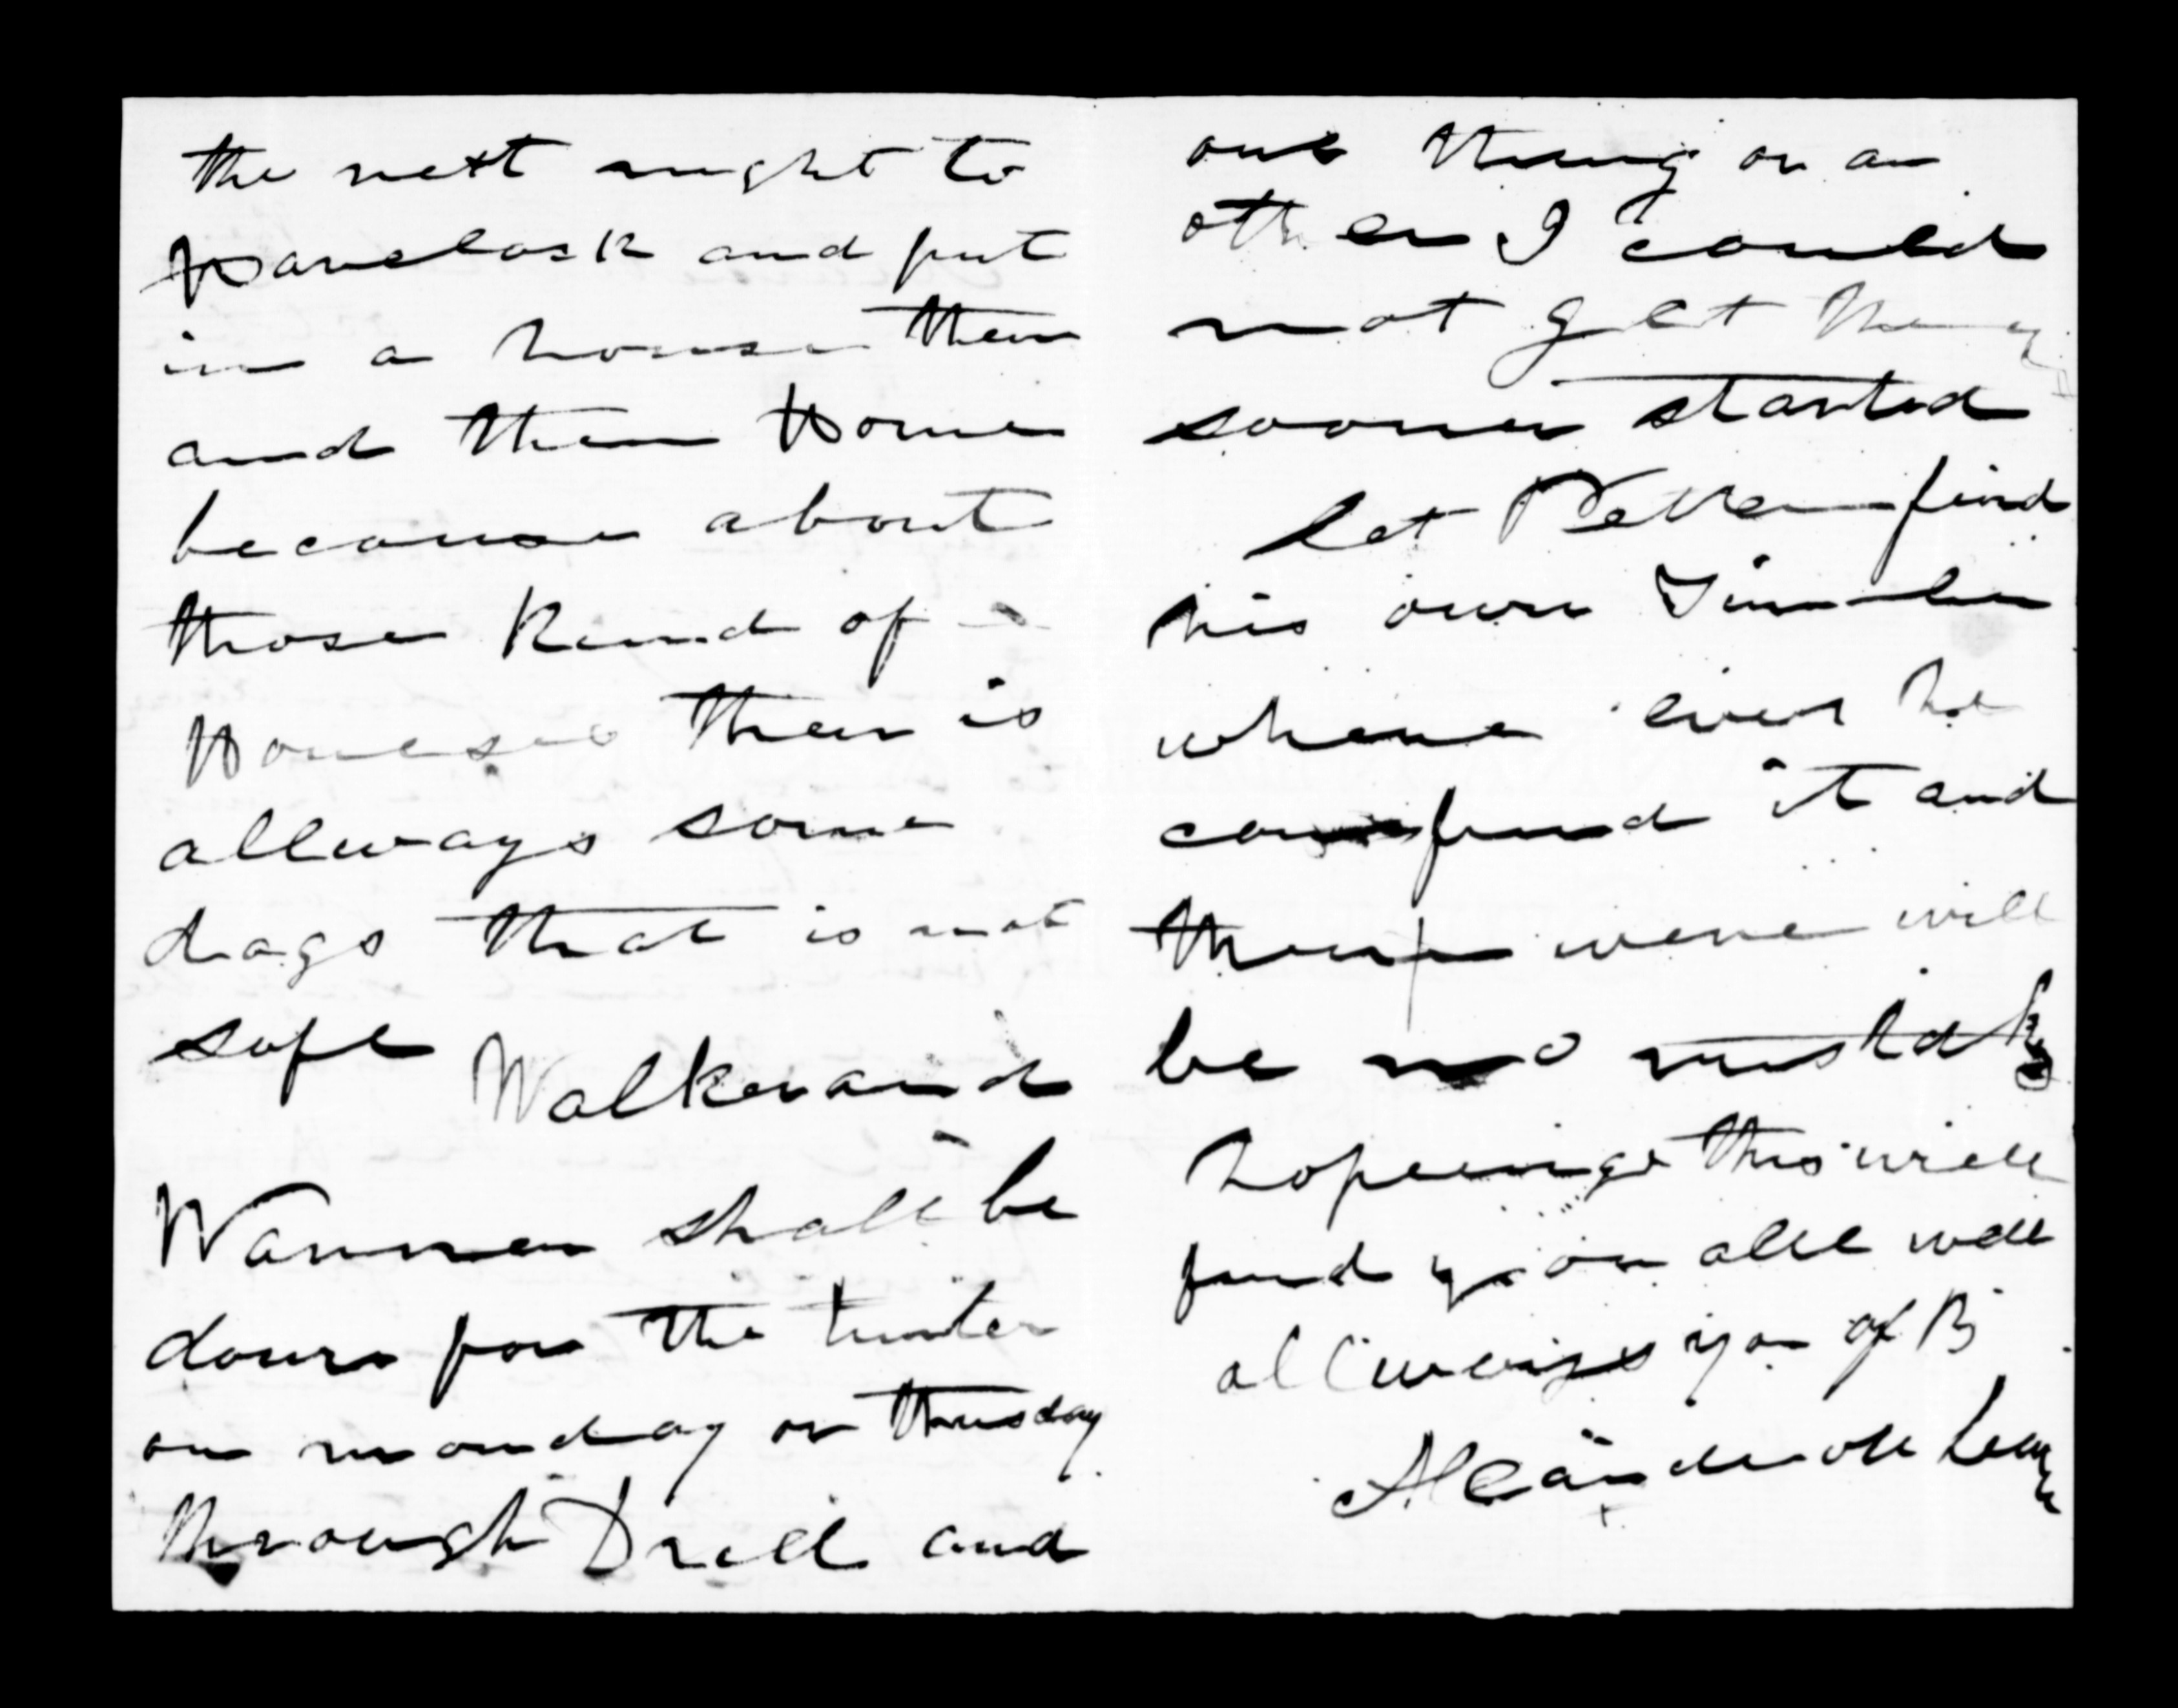 the next night to
Havelock and put
in a house then
and then Home
because about
those Kind of
Houeses ther is
allways some
dags that is not
safe Walker and
Warner shall be
down for the timber
on monday or thusday
through Drill and
one thing or an
other I could
not get they
sooner started
let Peter find
his own Timber
where ever he
can find it and
ther were will
be no mistak
hopeinge this will
find you all well
allweiys yor of B
Alexänder